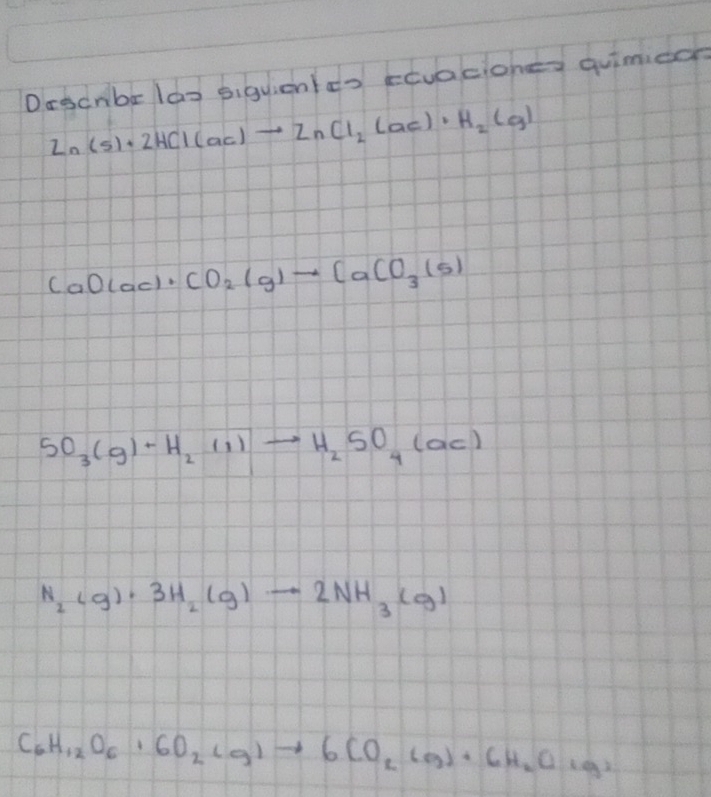 Describe las siguientes ecuaciones químicas
Zn(s) + 2HCl(ac) → ZnCl₂ (ac) + H₂(g)
CaO(ac) + CO₂ (g) → CaCO₃(s)
SO₃(g) + H₂ (l) → H₂SO₄(ac)
N₂ (g) + 3H₂(g) → 2NH₃(g)
C₆H₁₂O₆ + 6O₂(g) → 6CO₂ (g) + 6H₂O (g)